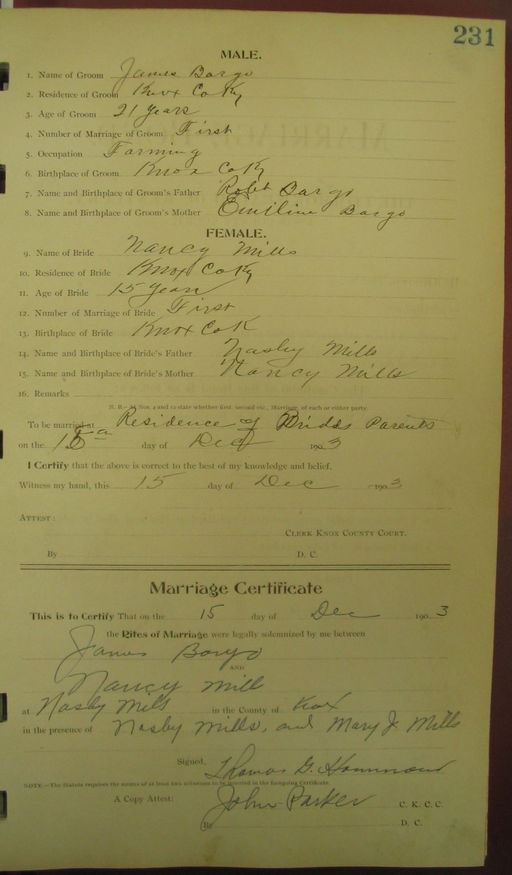 231
MALE.
1. Name of Groom James Bargo
2. Residence of Groom Knox Co Ky
3. Age of Groom 21 years
4. Number of Marriage of Groom First
5. Occupation Farming
6. Birthplace of Groom Knox Co Ky
7. Name and Birthplace of Groom's Father Robt Bargo
8. Name and Birthplace of Groom's Mother Emiline Bargo
FEMALE.
9. Name of Bride Nancy Mills
10. Residence of Bride Knox Co Ky
11. Age of Bride 15 years
12. Number of Marriage of Bride First
13. Birthplace of Bride Knox Co K
14. Name and Birthplace of Bride's Father Nasby Mills
15. Name and Birthplace of Bride's Mother Nancy Mills
16. Remarks
N. B.—At Nos. 4 and 12 state whether first, second etc., Marriage of each or either party.
To be married at Residence of Brides Parents
on the 15 day of Dec 1903
I Certify that the above is correct to the best of my knowledge and belief.
Witness my hand, this 15 day of Dec 1903
ATTEST:
CLERK KNOX COUNTY COURT.
By D. C.
Marriage Certificate
This is to Certify That on the 15 day of Dec 1903
the Rites of Marriage were legally solemnized by me between
James Bargo
AND
Nancy Mill
at Nasby Mills in the County of Knox
in the presence of Nasby Mills, and Mary J. Mills
Signed, Thomas G. Hammond
NOTE.—The Statute requires the names of at least two witnesses to be inserted in the foregoing certificate.
A Copy Attest: John Parker C. K. C. C.
By D. C.